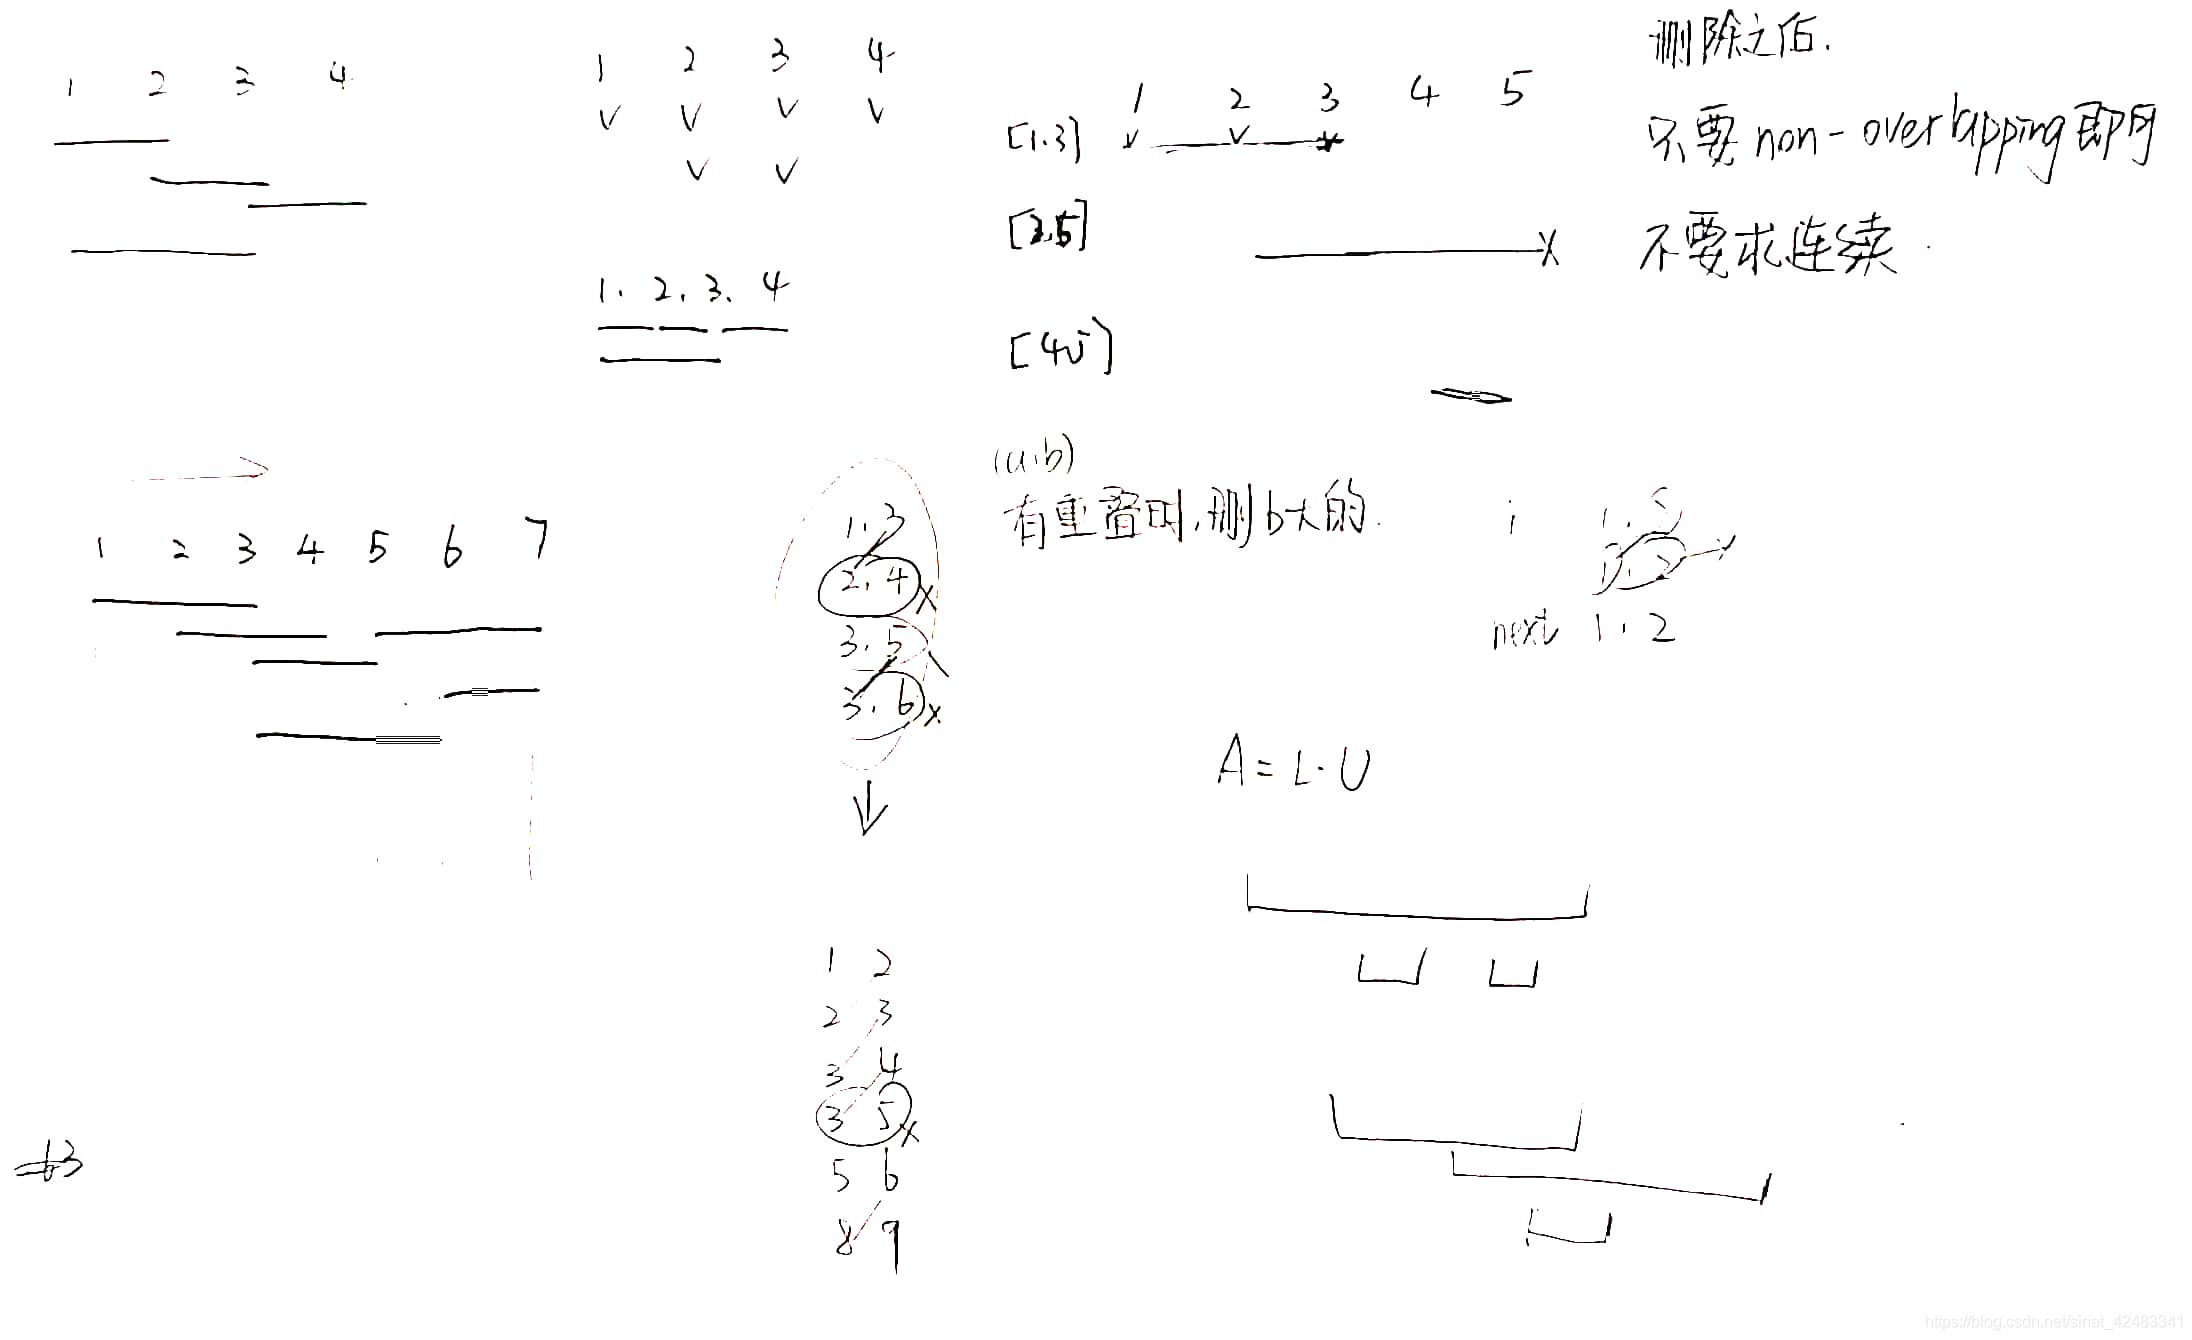 1 2 3 4
1 2 3 4
v v v v
v v
1. 2. 3. 4
1 2 3 4 5
[1.3]
[45]
删除之后.
只要 non-overlapping即可
不要求连续.
(a.b)
有重叠时,删b大的.
1 2 3 4 5 6 7
1. 3
2. 4 x
3. 5
3. 6 x
i
next 1. 2
A = L·U
1 2
2 3
3 4
3 5 x
5 6
8 9
https://blog.csdn.net/sinat_42483341